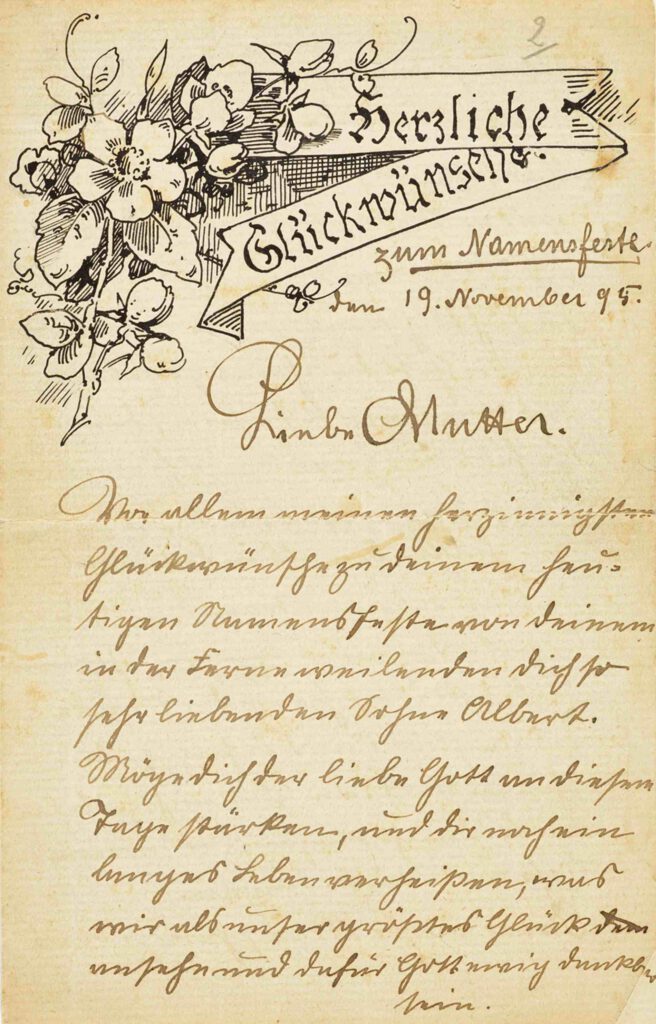 2
Herzliche
Glückwünsche
zum Namensfeste
den 19. November 95.
Liebe Mutter.
Vor allem meinen herzinnigsten
Glückwünsche zu deinem heu-
tigen Namensfeste von deinem
in der Ferne weilenden dich so
sehr liebenden Sohne Albert.
Möge dich der liebe Gott an diesem
Tage stärken, und dir noch ein
langes Leben verheißen, was
wir als unser größtes Glück
ansehn und dafür Gott ewig dankbar
sein.